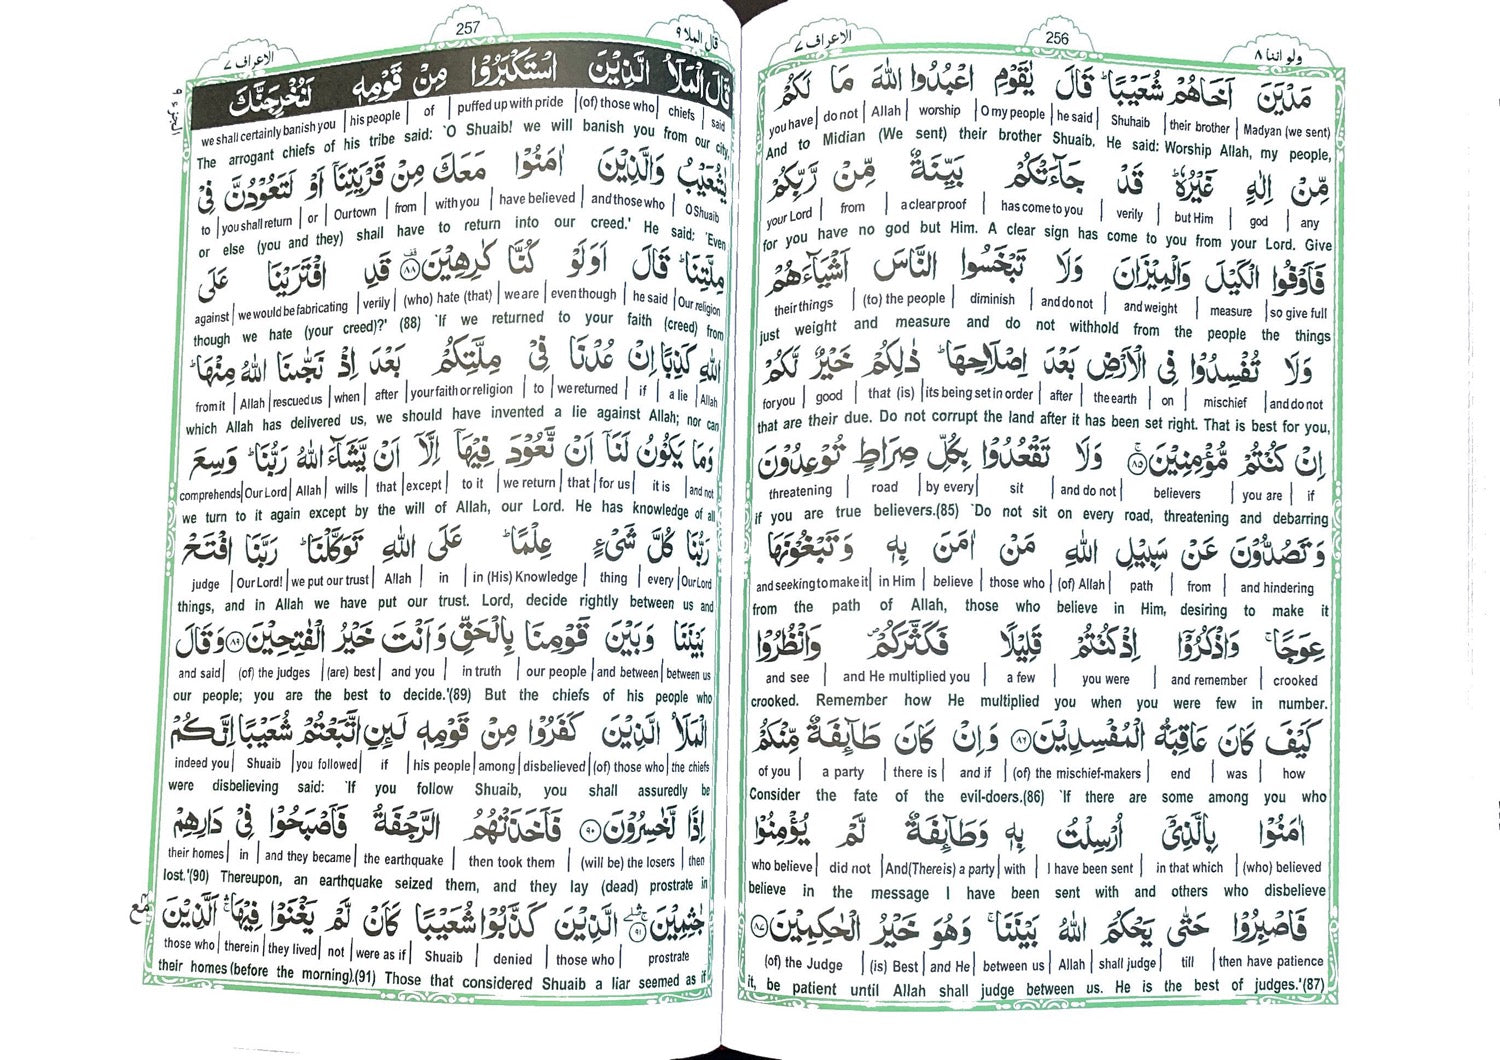 ولو اننا ٨
256
الاعراف ٧
مَدْيَنَ اَخَاهُمْ شُعَيْبًا ؕ قَالَ يٰقَوْمِ اعْبُدُوا اللّٰهَ مَا لَكُمْ
you have | do not | Allah | worship | O my people | he said | Shuhaib | their brother | Madyan (we sent)
And to Midian (We sent) their brother Shuaib. He said: Worship Allah, my people,
مِّنْ اِلٰهٍ غَيْرُهٗ ؕ قَدْ جَآءَتْكُمْ بَيِّنَةٌ مِّنْ رَّبِّكُمْ
your Lord | from | a clear proof | has come to you | verily | but Him | god | any
for you have no god but Him. A clear sign has come to you from your Lord. Give
فَاَوْفُوا الْكَيْلَ وَالْمِيْزَانَ وَلَا تَبْخَسُوا النَّاسَ اَشْيَآءَهُمْ
their things | (to) the people | diminish | and do not | and weight | measure | so give full
just weight and measure and do not withhold from the people the things
وَلَا تُفْسِدُوْا فِى الْاَرْضِ بَعْدَ اِصْلَاحِهَا ؕ ذٰلِكُمْ خَيْرٌ لَّكُمْ
for you | good | that (is) | its being set in order | after | the earth | on | mischief | and do not
that are their due. Do not corrupt the land after it has been set right. That is best for you,
اِنْ كُنْتُمْ مُّؤْمِنِيْنَ ۚ ﴿٨٥﴾ وَلَا تَقْعُدُوْا بِكُلِّ صِرَاطٍ تُوْعِدُوْنَ
threatening | road | by every | sit | and do not | believers | you are | if
if you are true believers.(85) `Do not sit on every road, threatening and debarring
وَتَصُدُّوْنَ عَنْ سَبِيْلِ اللّٰهِ مَنْ اٰمَنَ بِهٖ وَتَبْغُوْنَهَا
and seeking to make it | in Him | believe | those who | (of) Allah | path | from | and hindering
from the path of Allah, those who believe in Him, desiring to make it
عِوَجًا ۚ وَاذْكُرُوْٓا اِذْ كُنْتُمْ قَلِيْلًا فَكَثَّرَكُمْ ۪ وَانْظُرُوْا
and see | and He multiplied you | a few | you were | and remember | crooked
crooked. Remember how He multiplied you when you were few in number.
كَيْفَ كَانَ عَاقِبَةُ الْمُفْسِدِيْنَ ﴿٨٦﴾ وَاِنْ كَانَ طَآئِفَةٌ مِّنْكُمْ
of you | a party | there is | and if | (of) the mischief-makers | end | was | how
Consider the fate of the evil-doers.(86) `If there are some among you who
اٰمَنُوْا بِالَّذِىْٓ اُرْسِلْتُ بِهٖ وَطَآئِفَةٌ لَّمْ يُؤْمِنُوْا
who believe | did not | And(There is) a party | with | I have been sent | in that which | (who) believed
believe in the message I have been sent with and others who disbelieve
فَاصْبِرُوْا حَتّٰى يَحْكُمَ اللّٰهُ بَيْنَنَا ۚ وَهُوَ خَيْرُ الْحٰكِمِيْنَ ﴿٨٧﴾
(of) the Judge | (is) Best | and He | between us | Allah | shall judge | till | then have patience
it, be patient until Allah shall judge between us. He is the best of judges.'(87)
قال الملا ٩
257
الاعراف ٧
الجزء ٩
قَالَ الْمَلَاُ الَّذِيْنَ اسْتَكْبَرُوْا مِنْ قَوْمِهٖ لَنُخْرِجَنَّكَ
we shall certainly banish you | his people | of | puffed up with pride | (of) those who | chiefs | said
The arrogant chiefs of his tribe said: `O Shuaib! we will banish you from our city,
يٰشُعَيْبُ وَالَّذِيْنَ اٰمَنُوْا مَعَكَ مِنْ قَرْيَتِنَآ اَوْ لَتَعُوْدُنَّ فِىْ
to | you shall return | or | Our town | from | with you | have believed | and those who | O Shuaib
or else (you and they) shall have to return into our creed.' He said: `Even
مِلَّتِنَا ؕ قَالَ اَوَلَوْ كُنَّا كٰرِهِيْنَ ﴿٨٨﴾ قَدِ افْتَرَيْنَا عَلَى
against | we would be fabricating | verily | (who) hate (that) | we are | even though | he said | Our religion
though we hate (your creed)?' (88) `If we returned to your faith (creed) from
اللّٰهِ كَذِبًا اِنْ عُدْنَا فِىْ مِلَّتِكُمْ بَعْدَ اِذْ نَجّٰىنَا اللّٰهُ مِنْهَا ؕ
from it | Allah | rescued us | when | after | your faith or religion | to | we returned | if | a lie | Allah
which Allah has delivered us, we should have invented a lie against Allah; nor can
وَمَا يَكُوْنُ لَنَآ اَنْ نَّعُوْدَ فِيْهَآ اِلَّآ اَنْ يَّشَآءَ اللّٰهُ رَبُّنَا ؕ وَسِعَ
comprehends | Our Lord | Allah | wills | that | except | to it | we return | that | for us | it is | and not
we turn to it again except by the will of Allah, our Lord. He has knowledge of all
رَبُّنَا كُلَّ شَىْءٍ عِلْمًا ؕ عَلَى اللّٰهِ تَوَكَّلْنَا ؕ رَبَّنَا افْتَحْ
judge | Our Lord! | we put our trust | Allah | in | in (His) Knowledge | thing | every | Our Lord
things, and in Allah we have put our trust. Lord, decide rightly between us and
بَيْنَنَا وَبَيْنَ قَوْمِنَا بِالْحَقِّ وَاَنْتَ خَيْرُ الْفٰتِحِيْنَ ﴿٨٩﴾ وَقَالَ
and said | (of) the judges | (are) best | and you | in truth | our people | and between | between us
our people; you are the best to decide.'(89) But the chiefs of his people who
الْمَلَاُ الَّذِيْنَ كَفَرُوْا مِنْ قَوْمِهٖ لَئِنِ اتَّبَعْتُمْ شُعَيْبًا اِنَّكُمْ
indeed you | Shuaib | you followed | if | his people | among | disbelieved | (of) those who | the chiefs
were disbelieving said: `If you follow Shuaib, you shall assuredly be
اِذًا لَّخٰسِرُوْنَ ﴿٩٠﴾ فَاَخَذَتْهُمُ الرَّجْفَةُ فَاَصْبَحُوْا فِىْ دَارِهِمْ
their homes | in | and they became | the earthquake | then took them | (will be) the losers | then
lost.'(90) Thereupon, an earthquake seized them, and they lay (dead) prostrate in
جٰثِمِيْنَ ﴿٩١﴾ الَّذِيْنَ كَذَّبُوْا شُعَيْبًا كَاَنْ لَّمْ يَغْنَوْا فِيْهَا ۛ اَلَّذِيْنَ
those who | therein | they lived | not | were as if | Shuaib | denied | those who | prostrate
their homes (before the morning).(91) Those that considered Shuaib a liar seemed as if